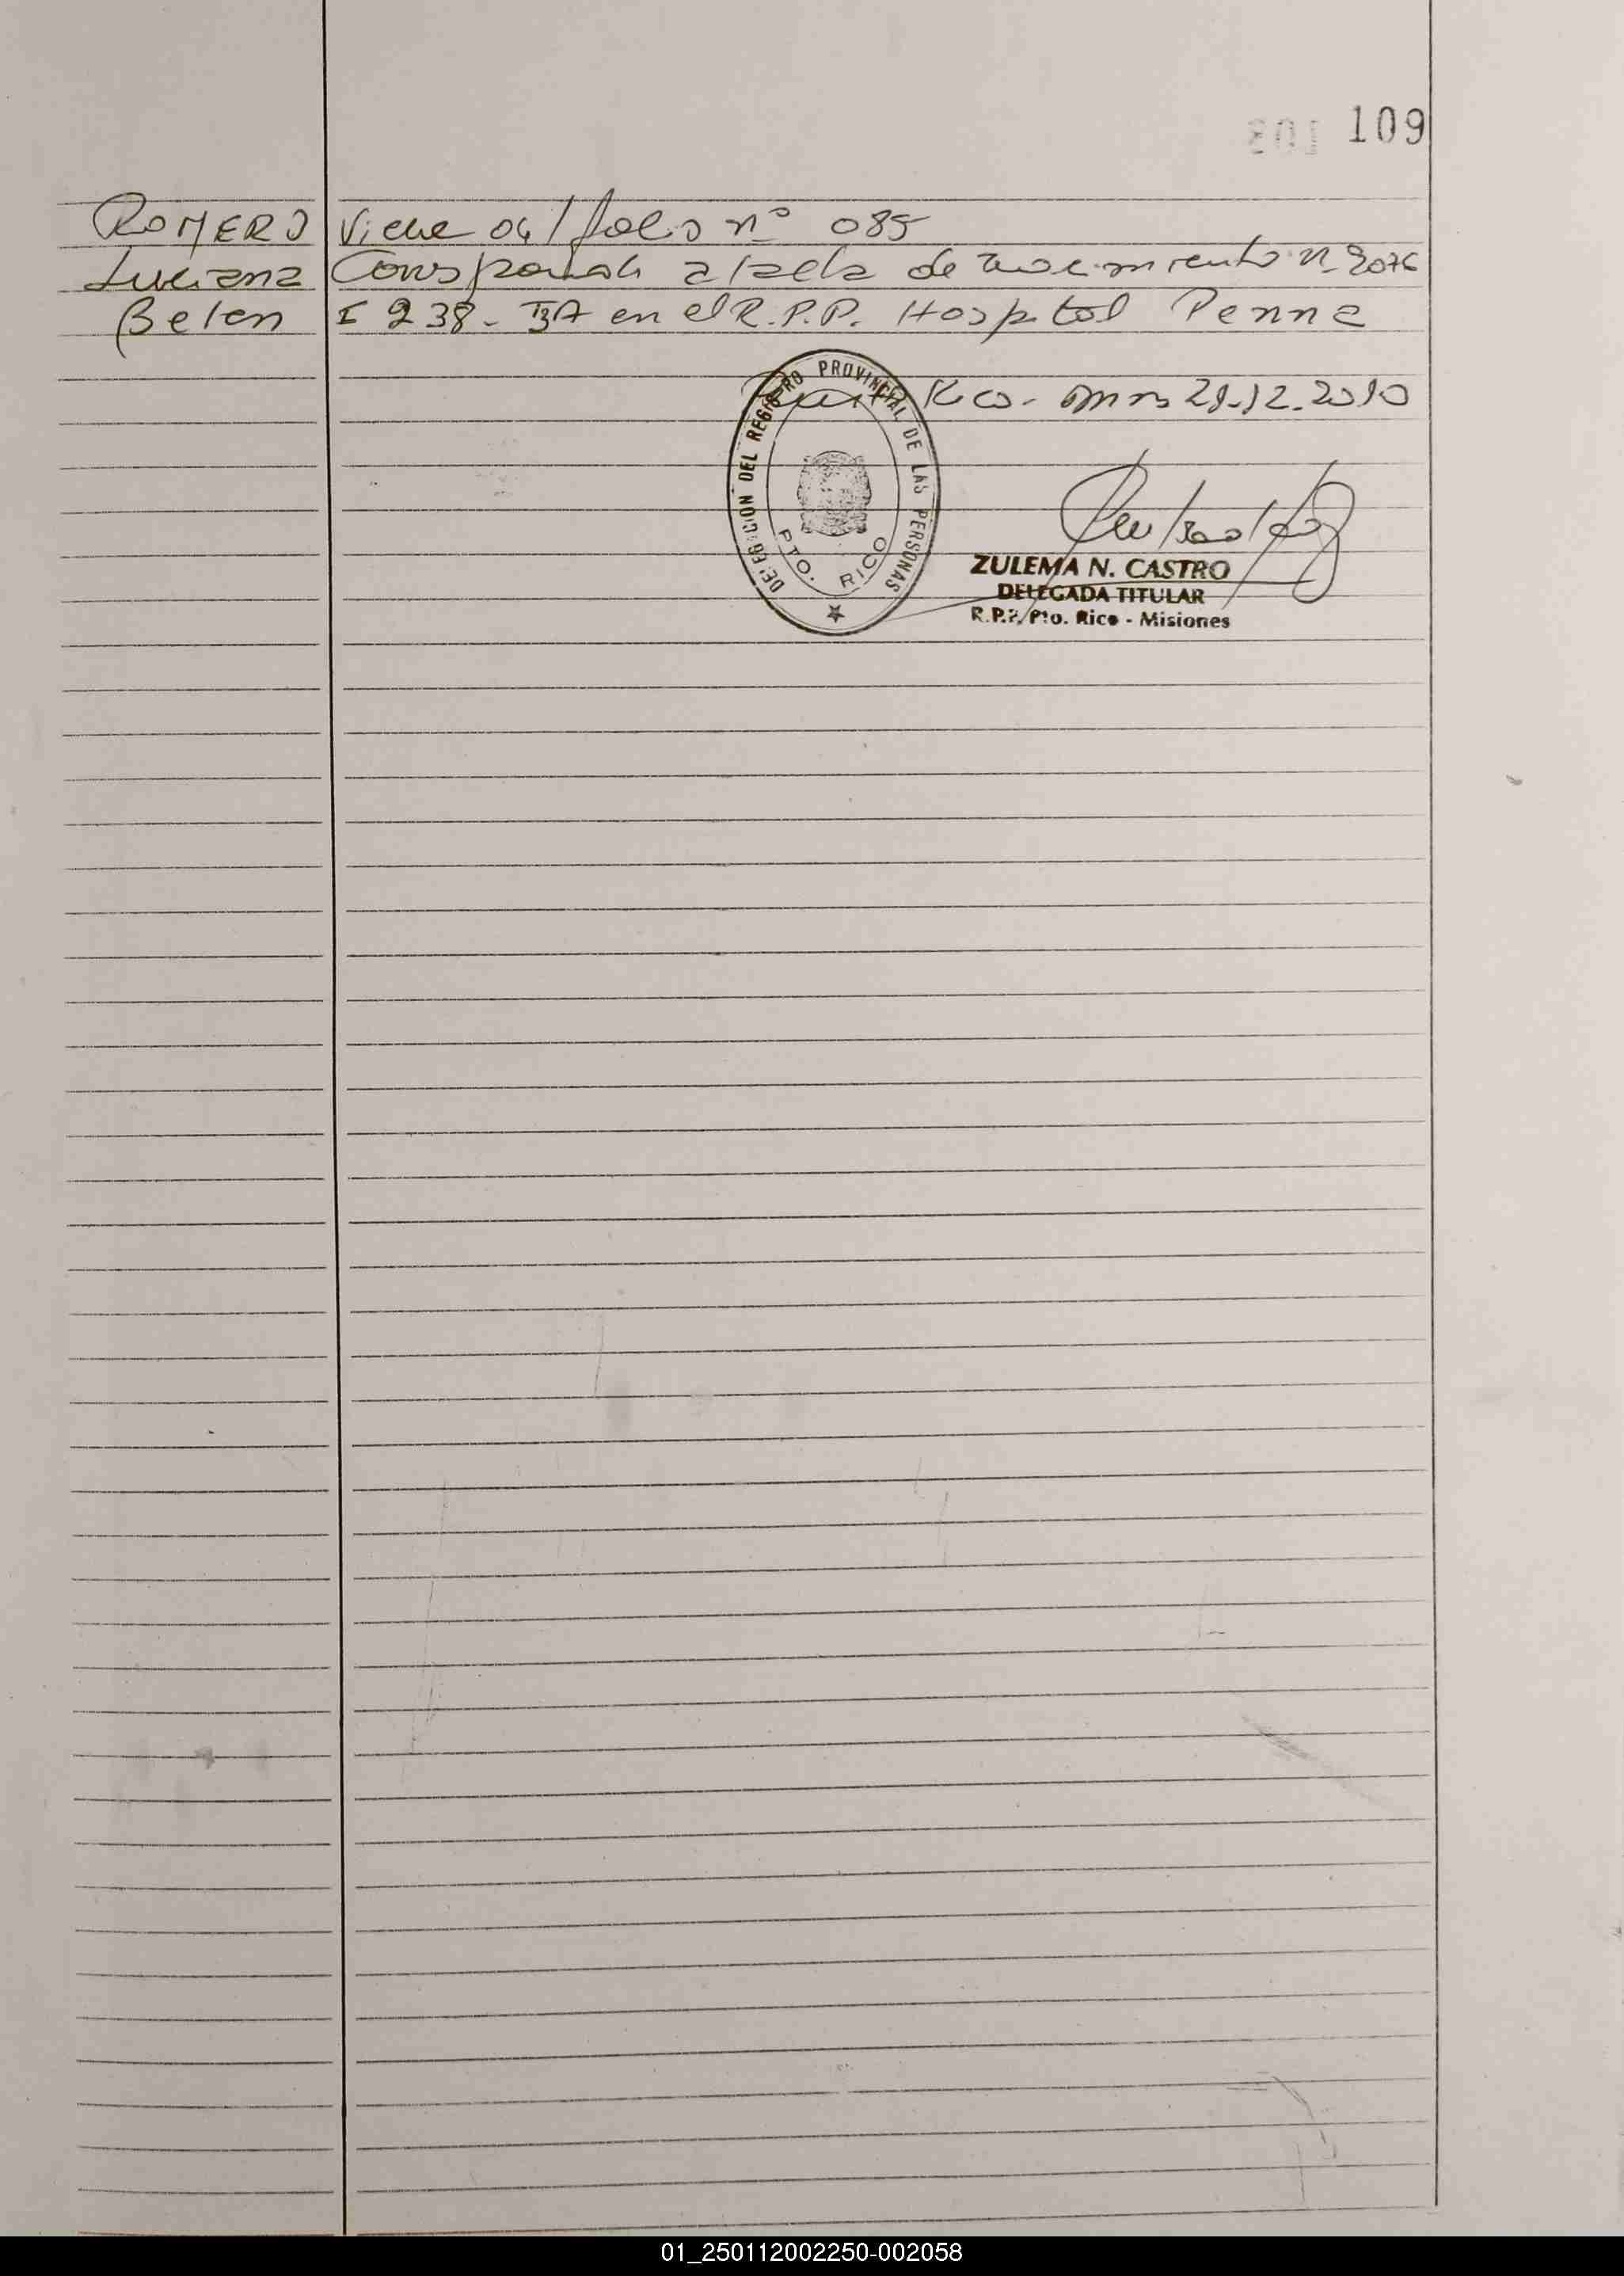 109
ROMERO Viene del folio nº 085
Luciana Corresponde al acta de nacimiento nº 2076
Belen I 238. en el R.P.P. Hospital Penna
Rico - 2010
DELEGACION DEL REGISTRO PROVINCIAL DE LAS PERSONAS
PTO. RICO
ZULEMA N. CASTRO
DELEGADA TITULAR
R.P.P. Pto. Rico - Misiones
01_250112002250-002058